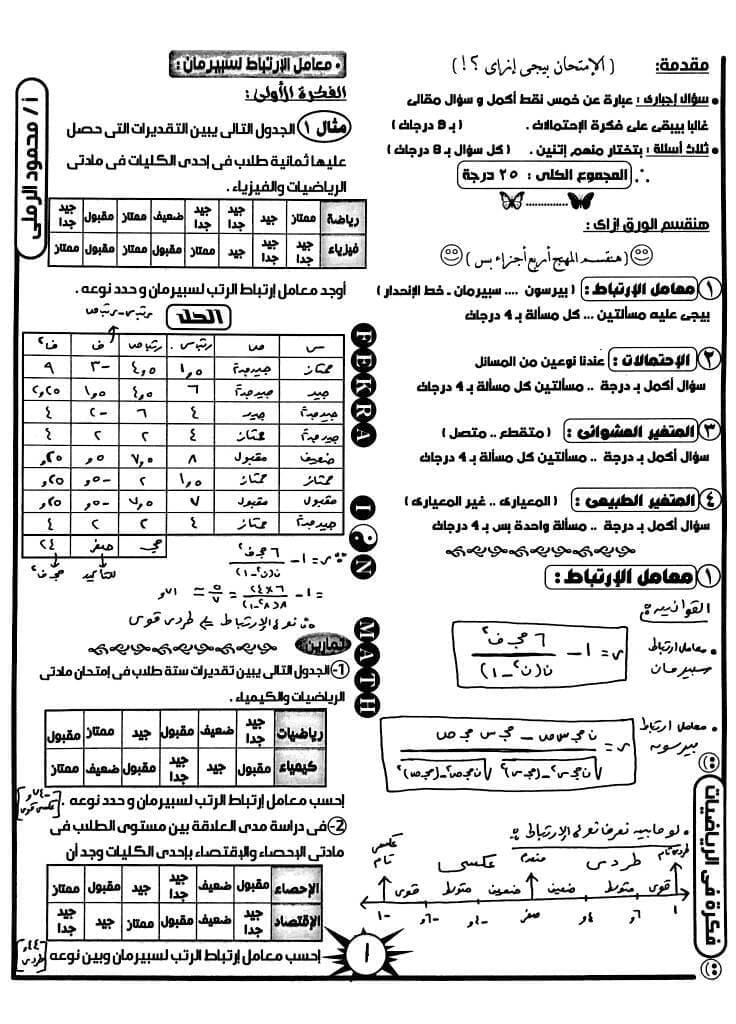 مقدمة: (الإمتحان بيجى إزاى ؟!)
• سؤال إجبارى: عبارة عن خمس نقط أكمل و سؤال مقالى
غالبا بيبقى على فكرة الإحتمالات. (بـ 9 درجات)
• ثلاث أسئلة: بتختار منهم إتنين. (كل سؤال بـ 8 درجات)
∴ المجموع الكلى: ٢٥ درجة
هنقسم الورق إزاى:
(هنقسم المنهج أربع أجزاء بس)
١ معامل الإرتباط: (بيرسون .... سبيرمان - خط الإنحدار)
بيجى عليه مسألتين ... كل مسألة بـ 4 درجات
٢ الإحتمالات: عندنا نوعين من المسائل
سؤال أكمل بـ درجة .. مسألتين كل مسألة بـ 4 درجات
٣ المتغير العشوائى: (متقطع .. متصل)
سؤال أكمل بـ درجة .. مسألتين كل مسألة بـ 4 درجات
٤ المتغير الطبيعى: (المعيارى .. غير المعيارى)
سؤال أكمل بـ درجة .. مسألة واحدة بس بـ 4 درجات
١ معامل الإرتباط:
القوانين:
• معامل ارتباط سبيرمان
ر = ١ - ٦ مجـ ف٢ / ن(ن٢ - ١)
• معامل ارتباط بيرسون
ر = ن مجـ س ص - مجـ س مجـ ص / √ن مجـ س٢ - (مجـ س)٢ √ن مجـ ص٢ - (مجـ ص)٢
• لو حابين نعرف نوع الارتباط:
عكسى تام عكسى منعدم طردى طردى تام
قوى متوسط ضعيف ضعيف متوسط قوى
-١ -٦و -٤و صفر ٤و ٦و ١
فكرة فى الرياضيات
أ/ محمود الرملى
• معامل الإرتباط لسبيرمان:
الفكرة الأولى:
مثال ١ الجدول التالى يبين التقديرات التى حصل
عليها ثمانية طلاب فى إحدى الكليات فى مادتى
الرياضيات والفيزياء.
رياضة ممتاز جيد جيد جدا جيد جدا ضعيف ممتاز مقبول جيد جدا
فيزياء جيد جدا جيد جدا جيد ممتاز مقبول ممتاز مقبول ممتاز
أوجد معامل إرتباط الرتب لسبيرمان و حدد نوعه.
الحل
رتب س - رتب ص
س ص رتب س رتب ص ف ف٢
ممتاز جيد جدا ١,٥ ٤,٥ -٣ ٩
جيد جيد جدا ٦ ٤,٥ ١,٥ ٢,٢٥
جيد جدا جيد ٤ ٦ -٢ ٤
جيد جدا ممتاز ٤ ٢ ٢ ٤
ضعيف مقبول ٨ ٧,٥ ٥و ٢٥و
ممتاز ممتاز ١,٥ ٢ -٥و ٢٥و
مقبول مقبول ٧ ٧,٥ -٥و ٢٥و
جيد جدا ممتاز ٤ ٢ ٢ ٤
مجـ صفر ٢٤
للتأكيد مجـ ف٢
∵ ر = ١ - ٦ مجـ ف٢ / ن(ن٢ - ١)
= ١ - ٦×٢٤ / ٨(٨٢ - ١) = ٥/٧ ≈ ٧١و
∴ نوع الارتباط ⇐ طردى قوى
تمارين:
1- الجدول التالى يبين تقديرات ستة طلاب فى إمتحان مادتى
الرياضيات والكيمياء.
رياضيات جيد جدا ضعيف مقبول جيد ممتاز مقبول
كيمياء مقبول جيد جيد جدا مقبول ضعيف ممتاز
إحسب معامل إرتباط الرتب لسبيرمان و حدد نوعه. [-٧٤و عكسى قوى]
2- فى دراسة مدى العلاقة بين مستوى الطلاب فى
مادتى الإحصاء والإقتصاد بإحدى الكليات وجد أن
الإحصاء مقبول ضعيف جيد جدا جيد مقبول ممتاز
الإقتصاد جيد جدا ضعيف مقبول ممتاز جيد جيد جدا
إحسب معامل إرتباط الرتب لسبيرمان وبين نوعه [٤٤و طردى]
FEKRA
I
N
MATH
١